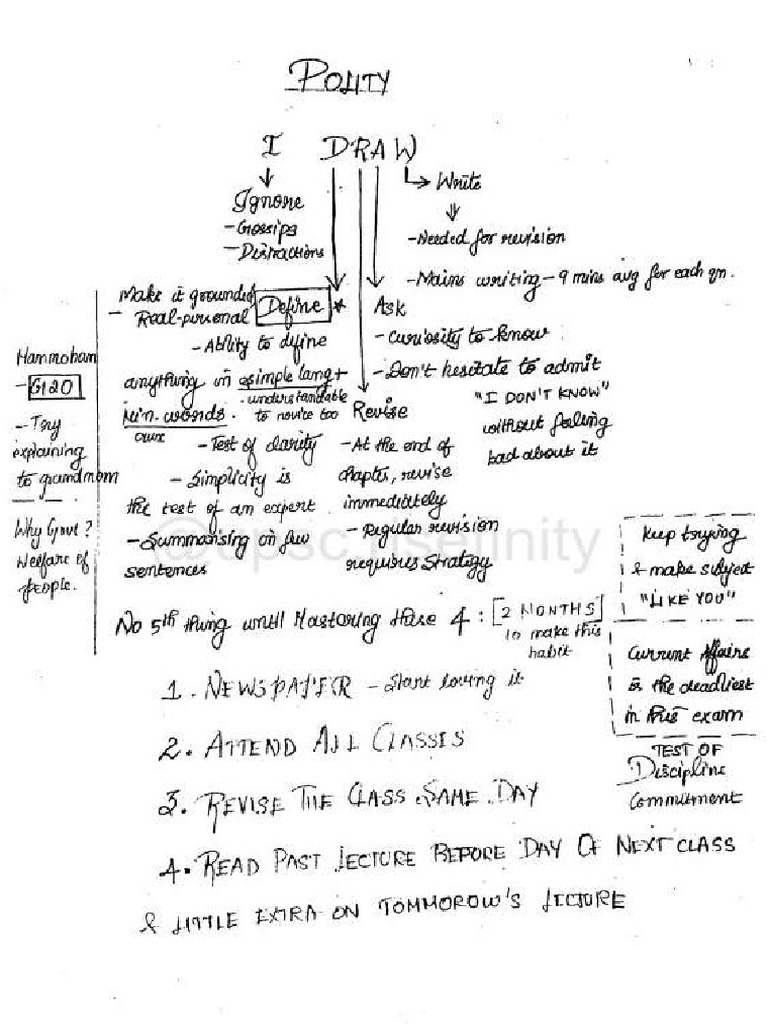 POLITY
I DRAW
Ignore
- Gossips
- Distractions
Write
- Needed for revision
- Mains writing - 9 mins avg for each qn.
Make it grounded
- Real-personal
Define *
- Ability to define
anything in a simple lang +
understandable
to novice too
min. words.
- Test of clarity
- Simplicity is
the test of an expert
- Summarising in few
sentences
Ask
- Curiosity to know
- Don't hesitate to admit
"I DON'T KNOW"
without feeling
bad about it
Revise
- At the end of
chapter, revise
immediately
- Regular revision
requires strategy
- G120
- Try
explaining
to grandmom
Why Govt?
Welfare of
people.
No 5th thing until Mastering these 4: [2 MONTHS]
to make this
habit
Keep trying
& make subject
"LIKE YOU"
Current Affairs
is the deadliest
in this exam
TEST OF
Discipline
Commitment
1. NEWSPAPER - Start loving it
2. ATTEND ALL CLASSES
3. REVISE THE CLASS SAME DAY
4. READ PAST LECTURE BEFORE DAY OF NEXT CLASS
& LITTLE EXTRA ON TOMMOROW'S LECTURE